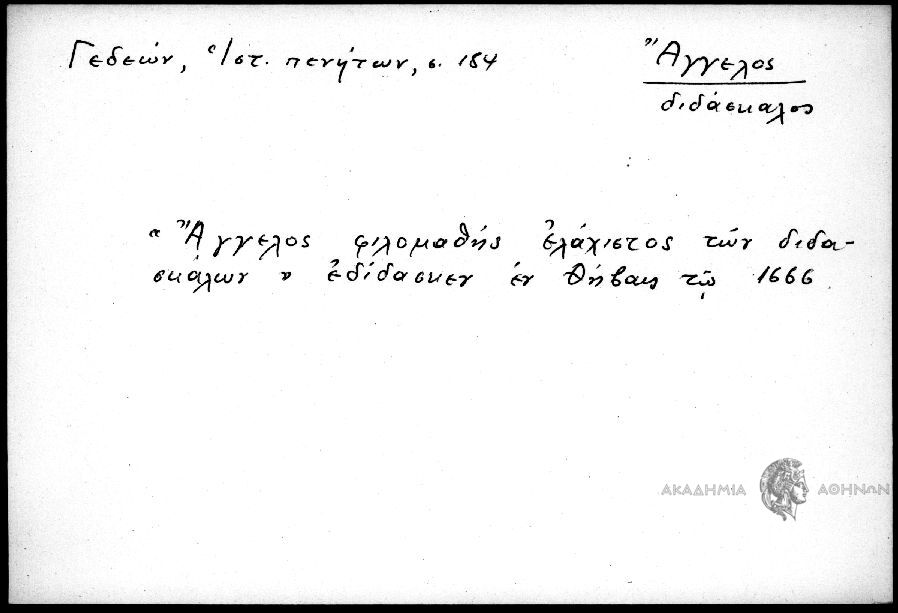 Γεδεών, Ἱστ. πενήτων, σ. 184
Ἄγγελος
διδάσκαλος
« Ἄγγελος φιλομαθής ἐλάχιστος τῶν διδα-
σκάλων » ἐδίδασκεν ἐν Θήβαις τῷ 1666
ΑΚΑΔΗΜΙΑ ΑΘΗΝΩΝ